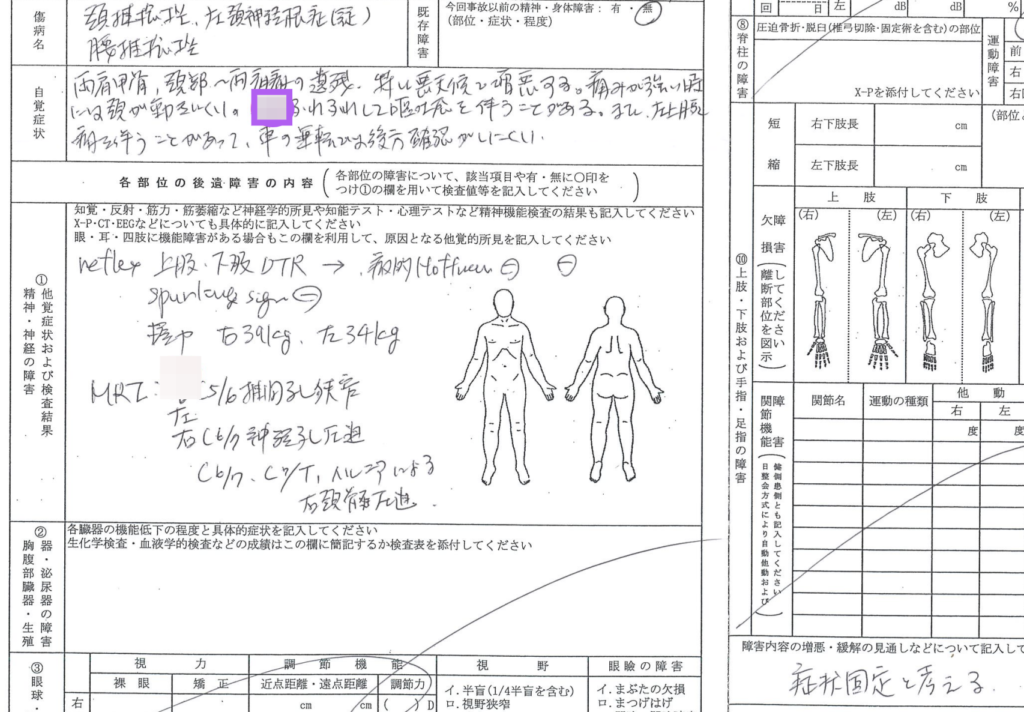 傷病名
頚椎捻挫、左頚神経根症(証)
腰椎捻挫
既存障害
今回事故以前の精神・身体障害：有・無
(部位・症状・程度)
自覚症状
両肩甲背、頚部～両肩の遺残、特に悪天候で増悪する。痛みが強い時
には頭が動きにくい。ふれふれして嘔吐を伴うことがある。また、左上肢
痛を伴うことがあって、車の運転では後方確認がしにくい。
各部位の後遺障害の内容
各部位の障害について、該当項目や有・無に○印を
つけ①の欄を用いて検査値等を記入してください
①
精神・神経の障害
他覚症状および検査結果
知覚・反射・筋力・筋萎縮など神経学的所見や知能テスト・心理テストなど精神機能検査の結果も記入してください
X-P・CT・EEGなどについても具体的に記入してください
眼・耳・四肢に機能障害がある場合もこの欄を利用して、原因となる他覚的所見を記入してください
reflex 上肢・下肢 DTR → 病的Hoffman ⊖ ⊖
spurling sign ⊖
握力 右39kg、左34kg
MRI: 5/6 椎間孔狭窄
左
右C6/7 神経孔圧迫
C6/7、C7/T1 ヘルニアによる
右頚髄圧迫.
②
胸腹部臓器・生殖器・泌尿器の障害
各臓器の機能低下の程度と具体的症状を記入してください
生化学検査・血液学的検査などの成績はこの欄に簡記するか検査表を添付してください
③
眼球・
視力
調節機能
視野
眼瞼の障害
裸眼
矯正
近点距離・遠点距離
調節力
右
cm
cm
( ) D
イ.半盲(1/4半盲を含む)
ロ.視野狭窄
イ.まぶたの欠損
ロ.まつげはげ
回
日
左
dB
dB
%
⑧
脊柱の障害
圧迫骨折・脱臼(椎弓切除・固定術を含む)の部位
X-Pを添付してください
運動障害
前
右
右
短縮
右下肢長
cm
左下肢長
cm
(部位
⑩上肢・下肢および手指・足指の障害
欠損障害
(離断部位を図示してください)
上肢
下肢
(右)
(左)
(右)
(左)
関節機能障害
日整会方式により自動他動および
健側患側とも記入してください
関節名
運動の種類
他動
右
左
度
度
障害内容の増悪・緩解の見通しなどについて記入して
症状固定と考える